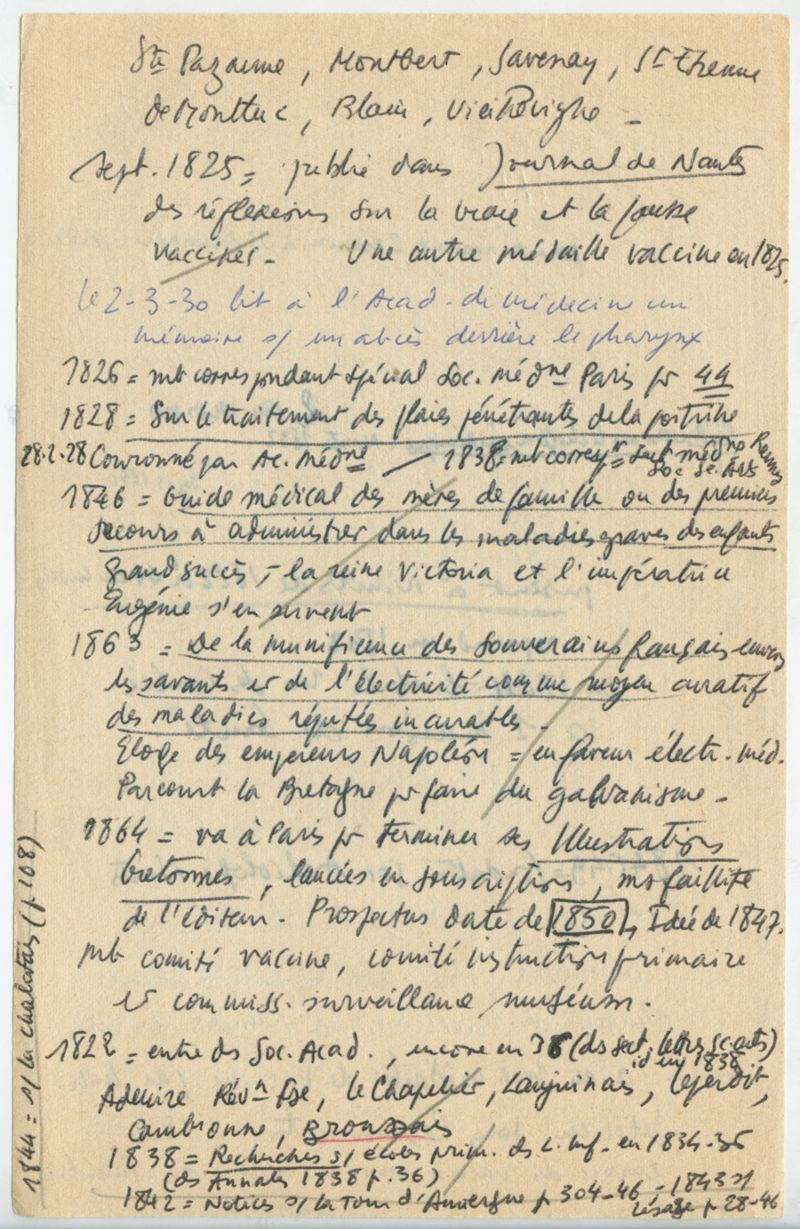 Ste Pazanne, Montbert, Savenay, St Etienne
de Montluc, Blain, Vieillevigne -
Sept. 1825 = publie dans Journal de Nantes
des réflexions sur la vraie et la fausse
vaccines - Une autre médaille vaccine en 1825.
le 2-3-30 lit à l'Acad. de médecine un
mémoire s/ un abcès derrière le pharynx
1826 = mb correspondant spécial Soc. médne Paris pr 44
1828 = Sur le traitement des plaies pénétrantes de la poitrine
28.2.28 Couronné par Ac. Médne — 1838 = mb corresp Soc. Sc. Arts Rennes
1846 = Guide médical des mères de famille ou des premiers
secours à administrer dans les maladies graves des enfants
Grand succès, - la reine Victoria et l'impératrice
Eugénie s'en servent
1863 = De la munificence des souverains français envers
les savants et de l'électricité comme moyen curatif
des maladies réputées incurables -
Eloge des empereurs Napoléon = en faveur électr. méd.
Parcourt la Bretagne pr faire du galvanisme -
1864 = va à Paris pr terminer ses Illustrations
bretonnes, lancées en souscription, ms faillite
de l'éditeur. Prospectus date de 1850, Idée de 1847.
mb comité vaccine, comité instruction primaire
et commiss. surveillance muséum.
1822 = entre ds Soc. Acad., encore en 38 (ds sect. lettres sc. arts)
id en 1838
Admire Révn Fse, le Chapelier, Lanjuinais,
Cambronne, Broussais
1838 = Recherches s/ écoles prim. ds L. Inf. en 1834-36
(ds Annales 1838 p. 36)
1842 = Notices s/ la Tour d'Auvergne p 304-46, - 1843 s/
Lesage p 28-46
1844 = s/ la chalotais (p 108)